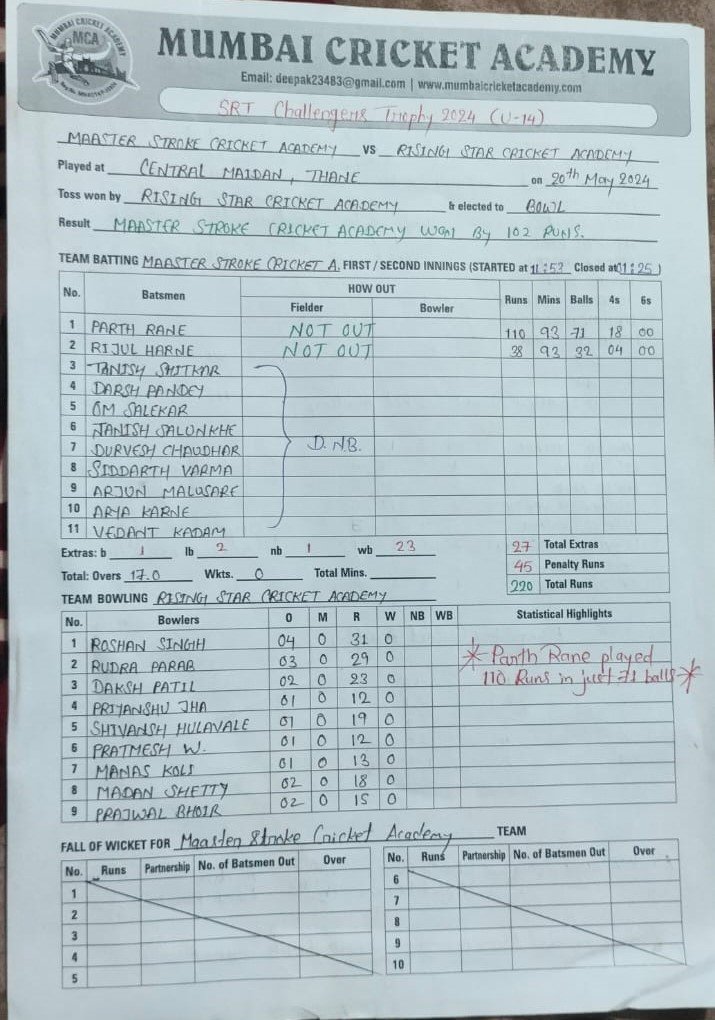 MUMBAI CRICKET ACADEMY
MCA
MUMBAI CRICKET ACADEMY
Email: deepak23483@gmail.com | www.mumbaicricketacademy.com
SRT Challengers Trophy 2024 (U-14)
MAASTER STROKE CRICKET ACADEMY vs RISING STAR CRICKET ACADEMY
Played at CENTRAL MAIDAN, THANE on 20th May 2024
Toss won by RISING STAR CRICKET ACADEMY & elected to BOWL
Result MAASTER STROKE CRICKET ACADEMY WON BY 102 RUNS.
TEAM BATTING MAASTER STROKE CRICKET A. FIRST / SECOND INNINGS (STARTED at Closed at 11:25)
No. Batsmen HOW OUT Runs Mins Balls 4s 6s
Fielder Bowler
1 PARTH RANE NOT OUT 110 93 71 18 00
2 RIJUL HARNE NOT OUT 38 93 32 04 00
3 TANISH SHITKAR
4 DARSH PANDEY
5 OM SALEKAR
6 JANISH SALONKHE
7 DURVESH CHAUDHAR D.N.B.
8 SIDDARTH VARMA
9 ARJUN MALUSARE
10 ARYA KARNE
11 VEDANT KADAM
Extras: b 1 lb 2 nb 1 wb 23 27 Total Extras
45 Penalty Runs
Total: Overs 17.0 Wkts. 0 Total Mins. 220 Total Runs
TEAM BOWLING RISING STAR CRICKET ACADEMY
No. Bowlers O M R W NB WB Statistical Highlights
1 ROSHAN SINGH 04 0 31 0
2 RUDRA PARAB 03 0 29 0 * Parth Rane played
3 DAKSH PATIL 02 0 23 0 110 Runs in just 71 balls *
4 PRIYANSHU JHA 01 0 12 0
5 SHIVANSH HULAVALE 01 0 19 0
6 PRATMESH W. 01 0 12 0
7 MANAS KOLI 01 0 13 0
8 MADAN SHETTY 02 0 18 0
9 PRAJWAL BHOIR 02 0 15 0
FALL OF WICKET FOR Maaster Stroke Cricket Academy TEAM
No. Runs Partnership No. of Batsmen Out Over No. Runs Partnership No. of Batsmen Out Over
1 6
2 7
3 8
4 9
5 10